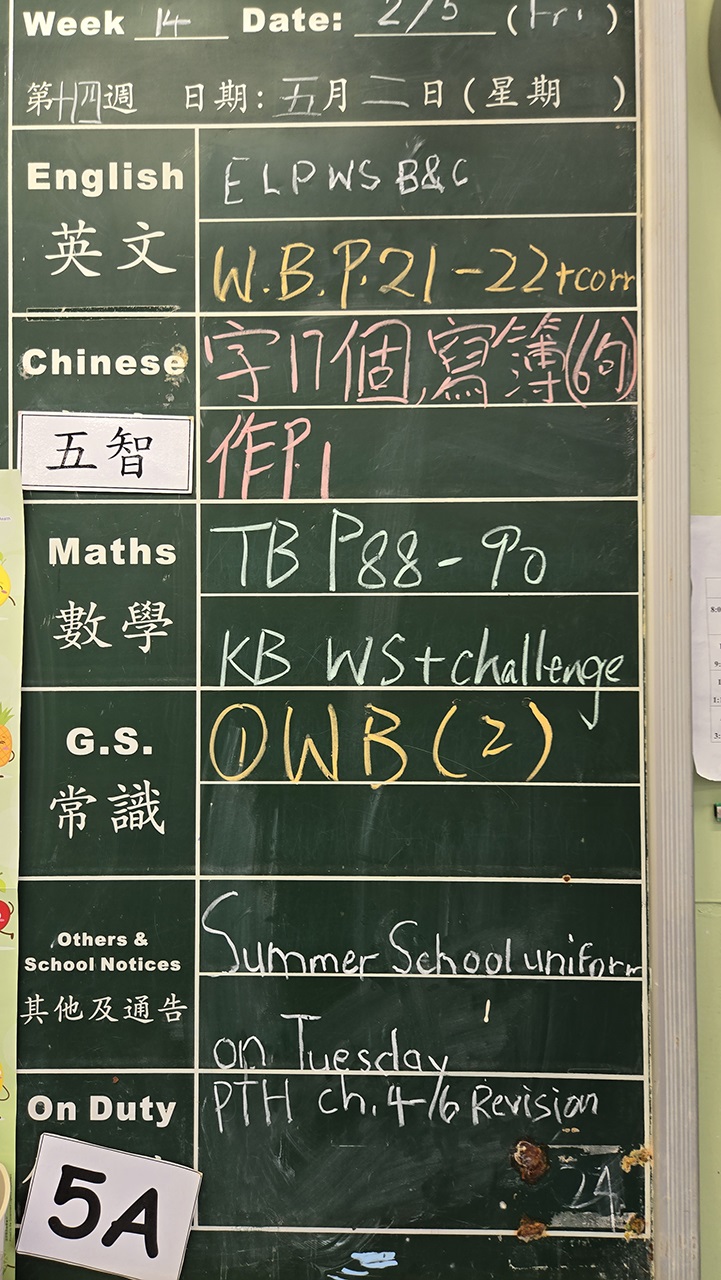 Week 14 Date: 2/5 (Fri)
第十四週 日期: 五月二日(星期 )
English
英文
ELP WS B&C
W.B.P.21-22+corr
Chinese
五智
字17個,寫簿(6句)
作P.1
Maths
數學
TB P88-90
KB WS+challenge
G.S.
常識
①WB(2)
Others &
School Notices
其他及通告
Summer School uniform
on Tuesday
On Duty
PTH ch.4-16 Revision
24
5A